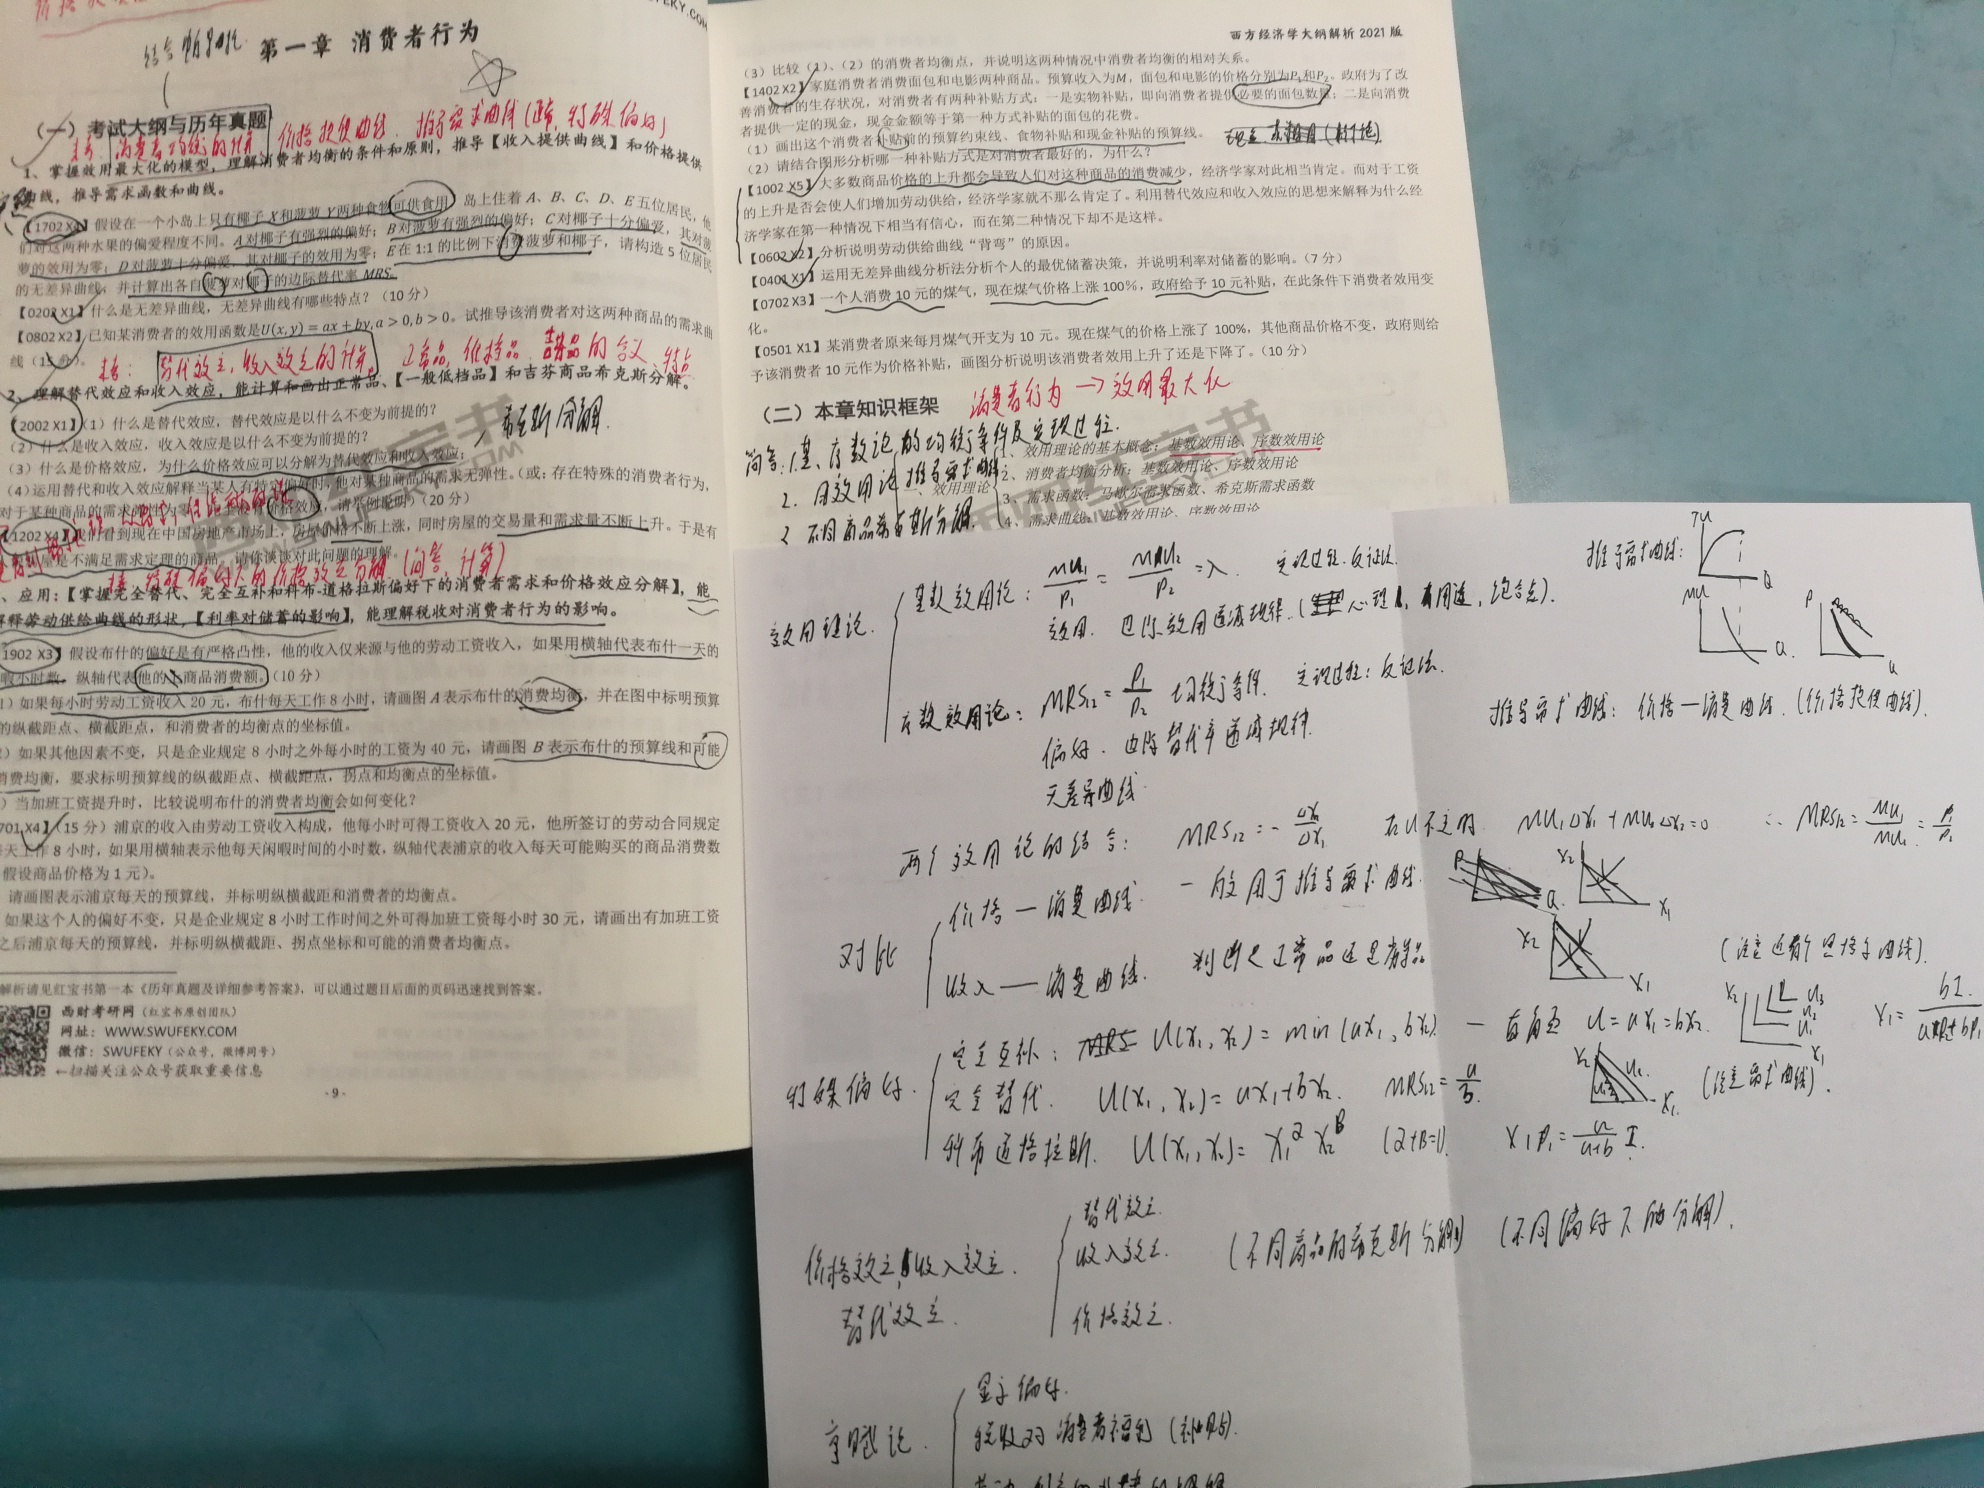 第一章 消费者行为
(一)考试大纲与历年真题
消费者均衡的计算
价格提供曲线、推导需求曲线(正常,特殊偏好)
1、掌握效用最大化的模型,理解消费者均衡的条件和原则,推导【收入提供曲线】和价格提供
曲线,推导需求函数和曲线。
假设在一个小岛上只有椰子X和菠萝Y两种食物可供食用 岛上住着A、B、C、D、E五位居民,他
们对这两种水果的偏爱程度不同。A对椰子有强烈的偏好;B对菠萝有强烈的偏好;C对椰子十分偏爱,其对菠
萝的效用为零;D对菠萝十分偏爱,其对椰子的效用为零;E在1:1的比例下消费菠萝和椰子,请构造5位居民
的无差异曲线;并计算出各自菠萝对椰子的边际替代率MRS。
【0202 X1】什么是无差异曲线,无差异曲线有哪些特点?(10分)
【0802 X2】已知某消费者的效用函数是U(x,y)=ax+by,a>0,b>0。试推导该消费者对这两种商品的需求曲
替代效应,收入效应的计算
2、理解替代效应和收入效应,能计算和画出正常品、【一般低档品】和吉芬商品希克斯分解。
希克斯分解
【2002 X1】(1)什么是替代效应,替代效应是以什么不变为前提的?
(2)什么是收入效应,收入效应是以什么不变为前提的?
(3)什么是价格效应,为什么价格效应可以分解为替代效应和收入效应;
(4)运用替代和收入效应解释当某人有特定偏好时,他对某种商品的需求无弹性。(或:存在特殊的消费者行为,
【1202 X4】我们看到现在中国房地产市场上,房屋价格不断上涨,同时房屋的交易量和需求量不断上升。于是有
房屋是不满足需求定理的商品。请你谈谈对此问题的理解。
、应用:【掌握完全替代、完全互补和科布-道格拉斯偏好下的消费者需求和价格效应分解】,能
解释劳动供给曲线的形状,【利率对储蓄的影响】,能理解税收对消费者行为的影响。
1902 X3】假设布什的偏好是有严格凸性,他的收入仅来源与他的劳动工资收入,如果用横轴代表布什一天的
暇小时数,纵轴代表他的商品消费额。(10分)
)如果每小时劳动工资收入20元,布什每天工作8小时,请画图A表示布什的消费均衡,并在图中标明预算
的纵截距点、横截距点,和消费者的均衡点的坐标值。
)如果其他因素不变,只是企业规定8小时之外每小时的工资为40元,请画图B表示布什的预算线和可能
消费均衡,要求标明预算线的纵截距点、横截距点,拐点和均衡点的坐标值。
)当加班工资提升时,比较说明布什的消费者均衡会如何变化?
701 X4】(15分)浦京的收入由劳动工资收入构成,他每小时可得工资收入20元,他所签订的劳动合同规定
每天工作8小时,如果用横轴表示他每天闲暇时间的小时数,纵轴代表浦京的收入每天可能购买的商品消费数
假设商品价格为1元)。
请画图表示浦京每天的预算线,并标明纵横截距和消费者的均衡点。
如果这个人的偏好不变,只是企业规定8小时工作时间之外可得加班工资每小时30元,请画出有加班工资
之后浦京每天的预算线,并标明纵横截距、拐点坐标和可能的消费者均衡点。
解析请见红宝书第一本《历年真题及详细参考答案》,可以通过题目后面的页码迅速找到答案。
西财考研网(红宝书原创团队)
网址:WWW.SWUFEKY.COM
微信:SWUFEKY(公众号,微博同号)
←扫描关注公众号获取重要信息
- 9 -
西方经济学大纲解析 2021版
(3)比较(1)、(2)的消费者均衡点,并说明这两种情况中消费者均衡的相对关系。
【1402 X2】家庭消费者消费面包和电影两种商品。预算收入为M,面包和电影的价格分别为P₁和P₂。政府为了改
善消费者的生存状况,对消费者有两种补贴方式:一是实物补贴,即向消费者提供必要的面包数量;二是向消费
者提供一定的现金,现金金额等于第一种方式补贴的面包的花费。
(1)画出这个消费者补贴前的预算约束线、食物补贴和现金补贴的预算线。
(2)请结合图形分析哪一种补贴方式是对消费者最好的,为什么?
【1002 X5】大多数商品价格的上升都会导致人们对这种商品的消费减少,经济学家对此相当肯定。而对于工资
的上升是否会使人们增加劳动供给,经济学家就不那么肯定了。利用替代效应和收入效应的思想来解释为什么经
济学家在第一种情况下相当有信心,而在第二种情况下却不是这样。
【0602 X2】分析说明劳动供给曲线“背弯”的原因。
【0401 X1】运用无差异曲线分析法分析个人的最优储蓄决策,并说明利率对储蓄的影响。(7分)
【0702 X3】一个人消费10元的煤气,现在煤气价格上涨100%,政府给予10元补贴,在此条件下消费者效用变
化。
【0501 X1】某消费者原来每月煤气开支为10元。现在煤气的价格上涨了100%,其他商品价格不变,政府则给
予该消费者10元作为价格补贴,画图分析说明该消费者效用上升了还是下降了。(10分)
(二)本章知识框架 消费者行为→效用最大化
1、效用理论的基本概念:基数效用论、序数效用论
2、消费者均衡分析:基数效用论、序数效用论
3、需求函数:马歇尔需求函数、希克斯需求函数
效用理论
基数效用论: MU₁/P₁ = MU₂/P₂ = λ. 实现过程.反证法.
效用. 边际效用递减规律.
推导需求曲线:
TU
Q
MU
Q.
P
Q
序数效用论: MRS₁₂ = P₁/P₂ 均衡条件. 实现过程:反证法.
偏好. 边际替代率递减规律.
无差异曲线.
推导需求曲线:价格—消费曲线.(价格提供曲线).
两个效用论的结合: MRS₁₂ = -ΔX₂/ΔX₁ 在U不变时. MU₁ΔX₁+MU₂ΔX₂=0 ∴ MRS₁₂=MU₁/MU₂=P₁/P₂
对比
价格—消费曲线. 一般用于推导需求曲线.
收入—消费曲线. 判断是正常品还是劣等品
(注意还有个恩格尔曲线).
特殊偏好.
完全互补: U(X₁,X₂)=min(aX₁,bX₂). — 直角点 U=aX₁=bX₂.
完全替代. U(X₁,X₂)=aX₁+bX₂. MRS₁₂=a/b. (注意需求曲线).
科布道格拉斯. U(X₁,X₂)=X₁^α X₂^β (α+β=1). X₁P₁=a/(a+b) I.
价格效应,收入效应.
替代效应.
替代效应.
收入效应.
价格效应.
(不同商品的希克斯分解) (不同偏好下的分解).
享赋论.
显示偏好.
税收对消费者福利(补贴).